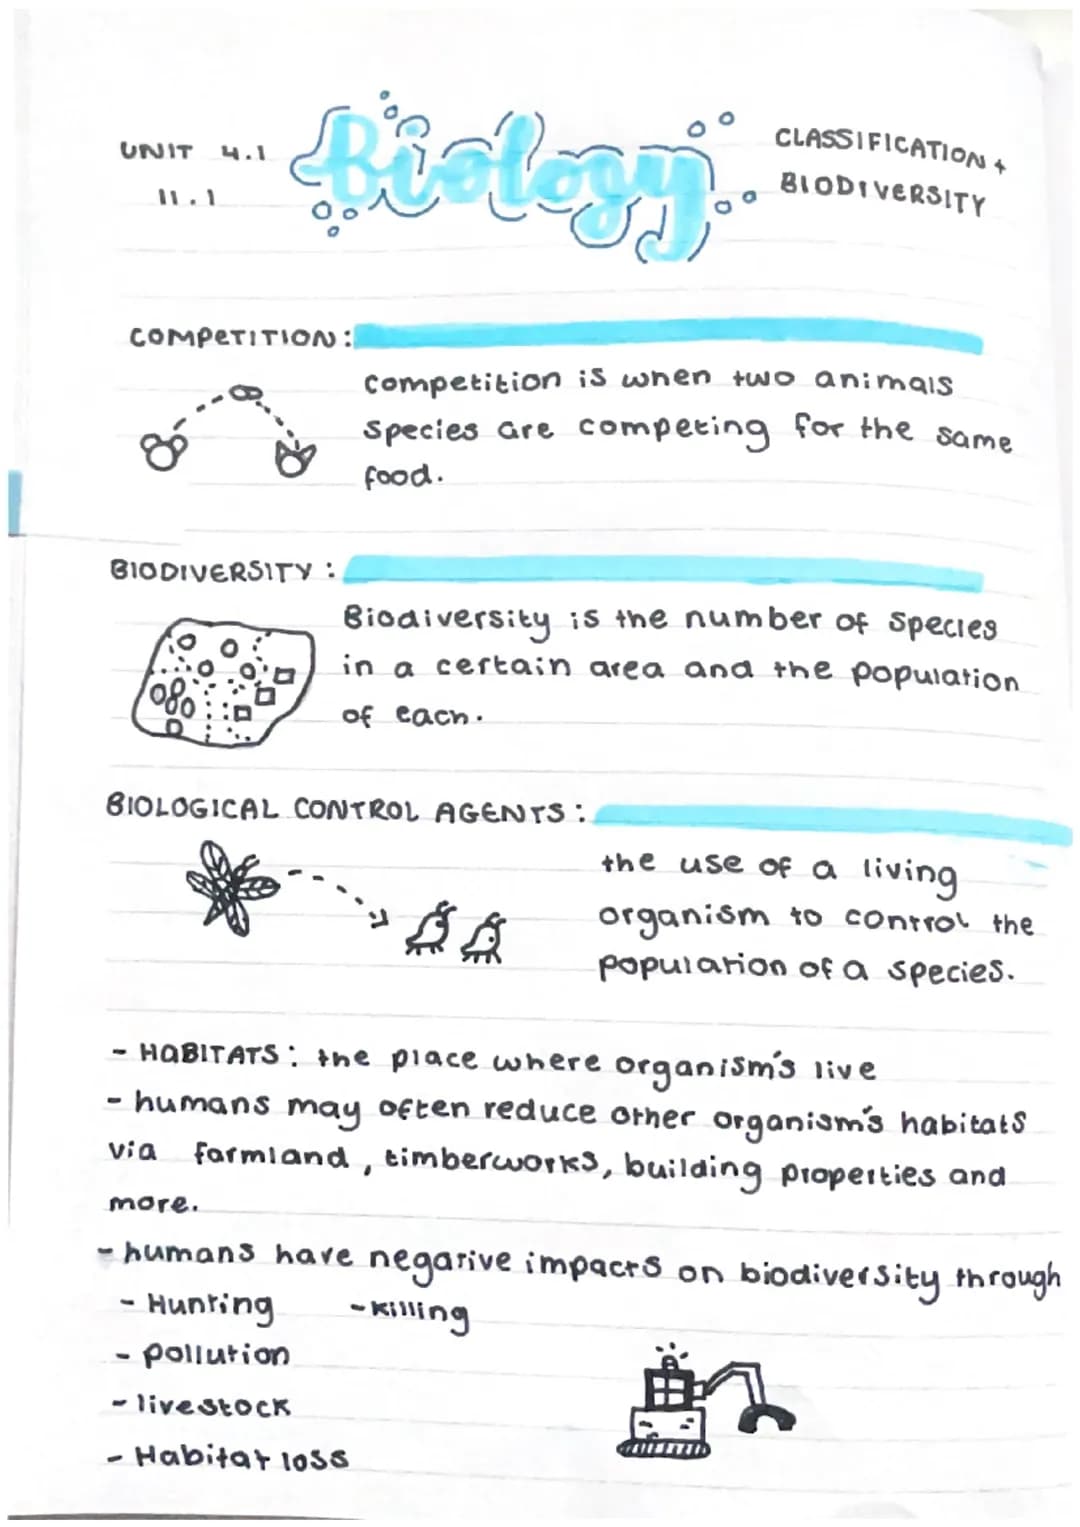 UNIT 4.1
11.1
Biology
CLASSIFICATION +
BIODIVERSITY
COMPETITION:
Competition is when two animals
species are competing for the same
food.
BIODIVERSITY :
Biodiversity is the number of species
in a certain area and the population
of each.
BIOLOGICAL CONTROL AGENTS :
the use of a living
organism to control the
population of a species.
- HABITATS : the place where organism's live
- humans may often reduce other organism's habitats
via farmland , timberworks, building properties and
more.
- humans have negative impacts on biodiversity through
- Hunting - killing
- pollution
- livestock
- Habitat loss